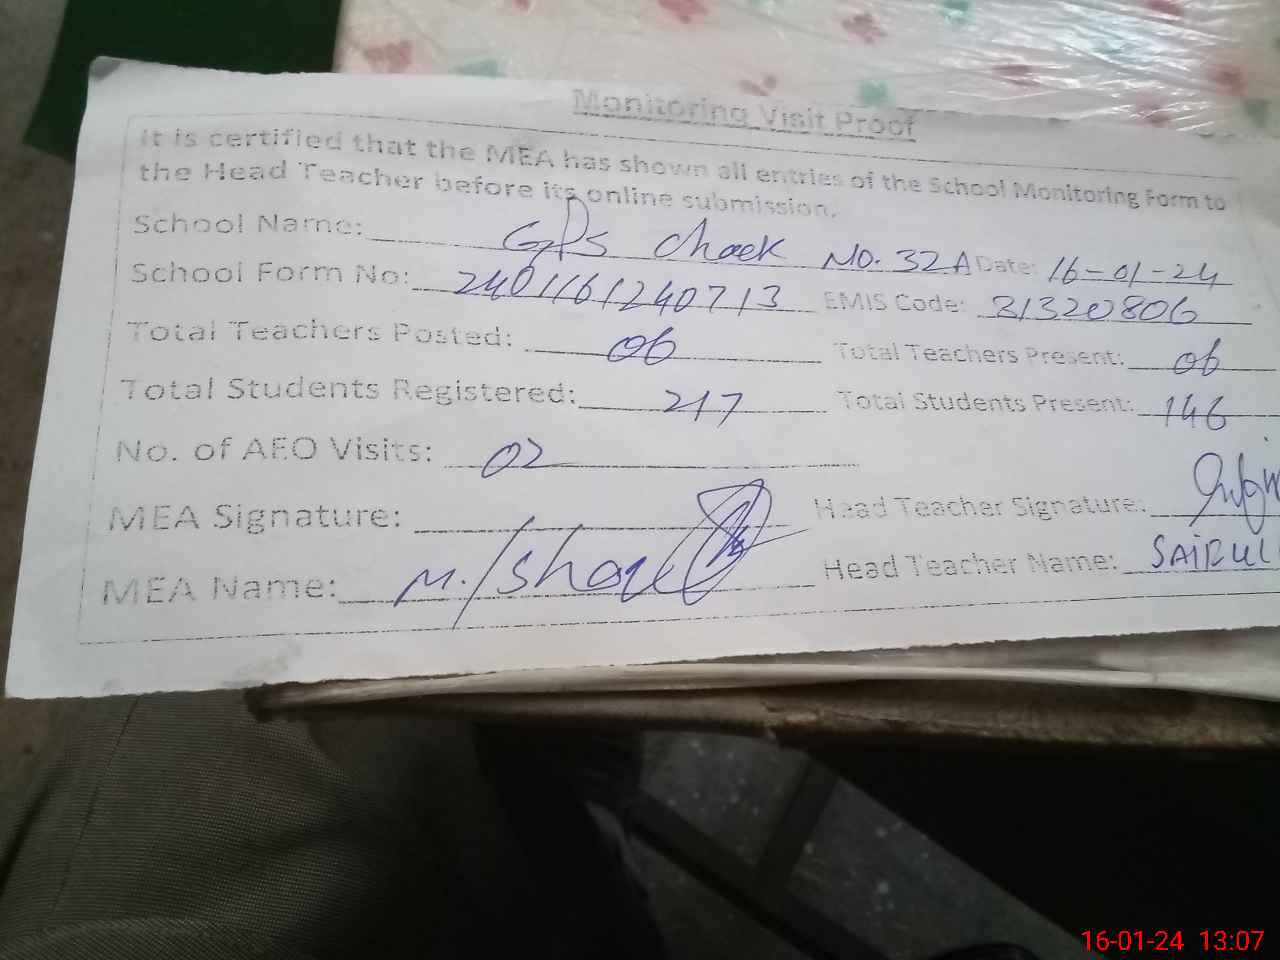 Monitoring Visit Proof
It is certified that the MEA has shown all entries of the School Monitoring Form to
the Head Teacher before its online submission.
School Name: GPS Chack No. 32A Date: 16-01-24
School Form No: 2401161240713 EMIS Code: 31320806
Total Teachers Posted: 06 Total Teachers Present: 06
Total Students Registered: 217 Total Students Present: 146
No. of AEO Visits: 02
MEA Signature: Head Teacher Signature:
MEA Name: M. Head Teacher Name:
16-01-24 13:07